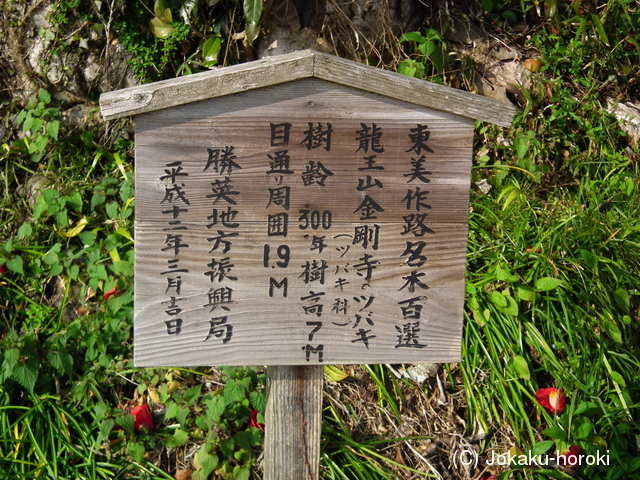 東美作路名木百選
龍王山金剛寺のツバキ
(ツバキ科)
樹齢300年樹高7M
目通り周囲1.9M
勝英地方振興局
平成十二年三月吉日
(C)Jokaku-horoki